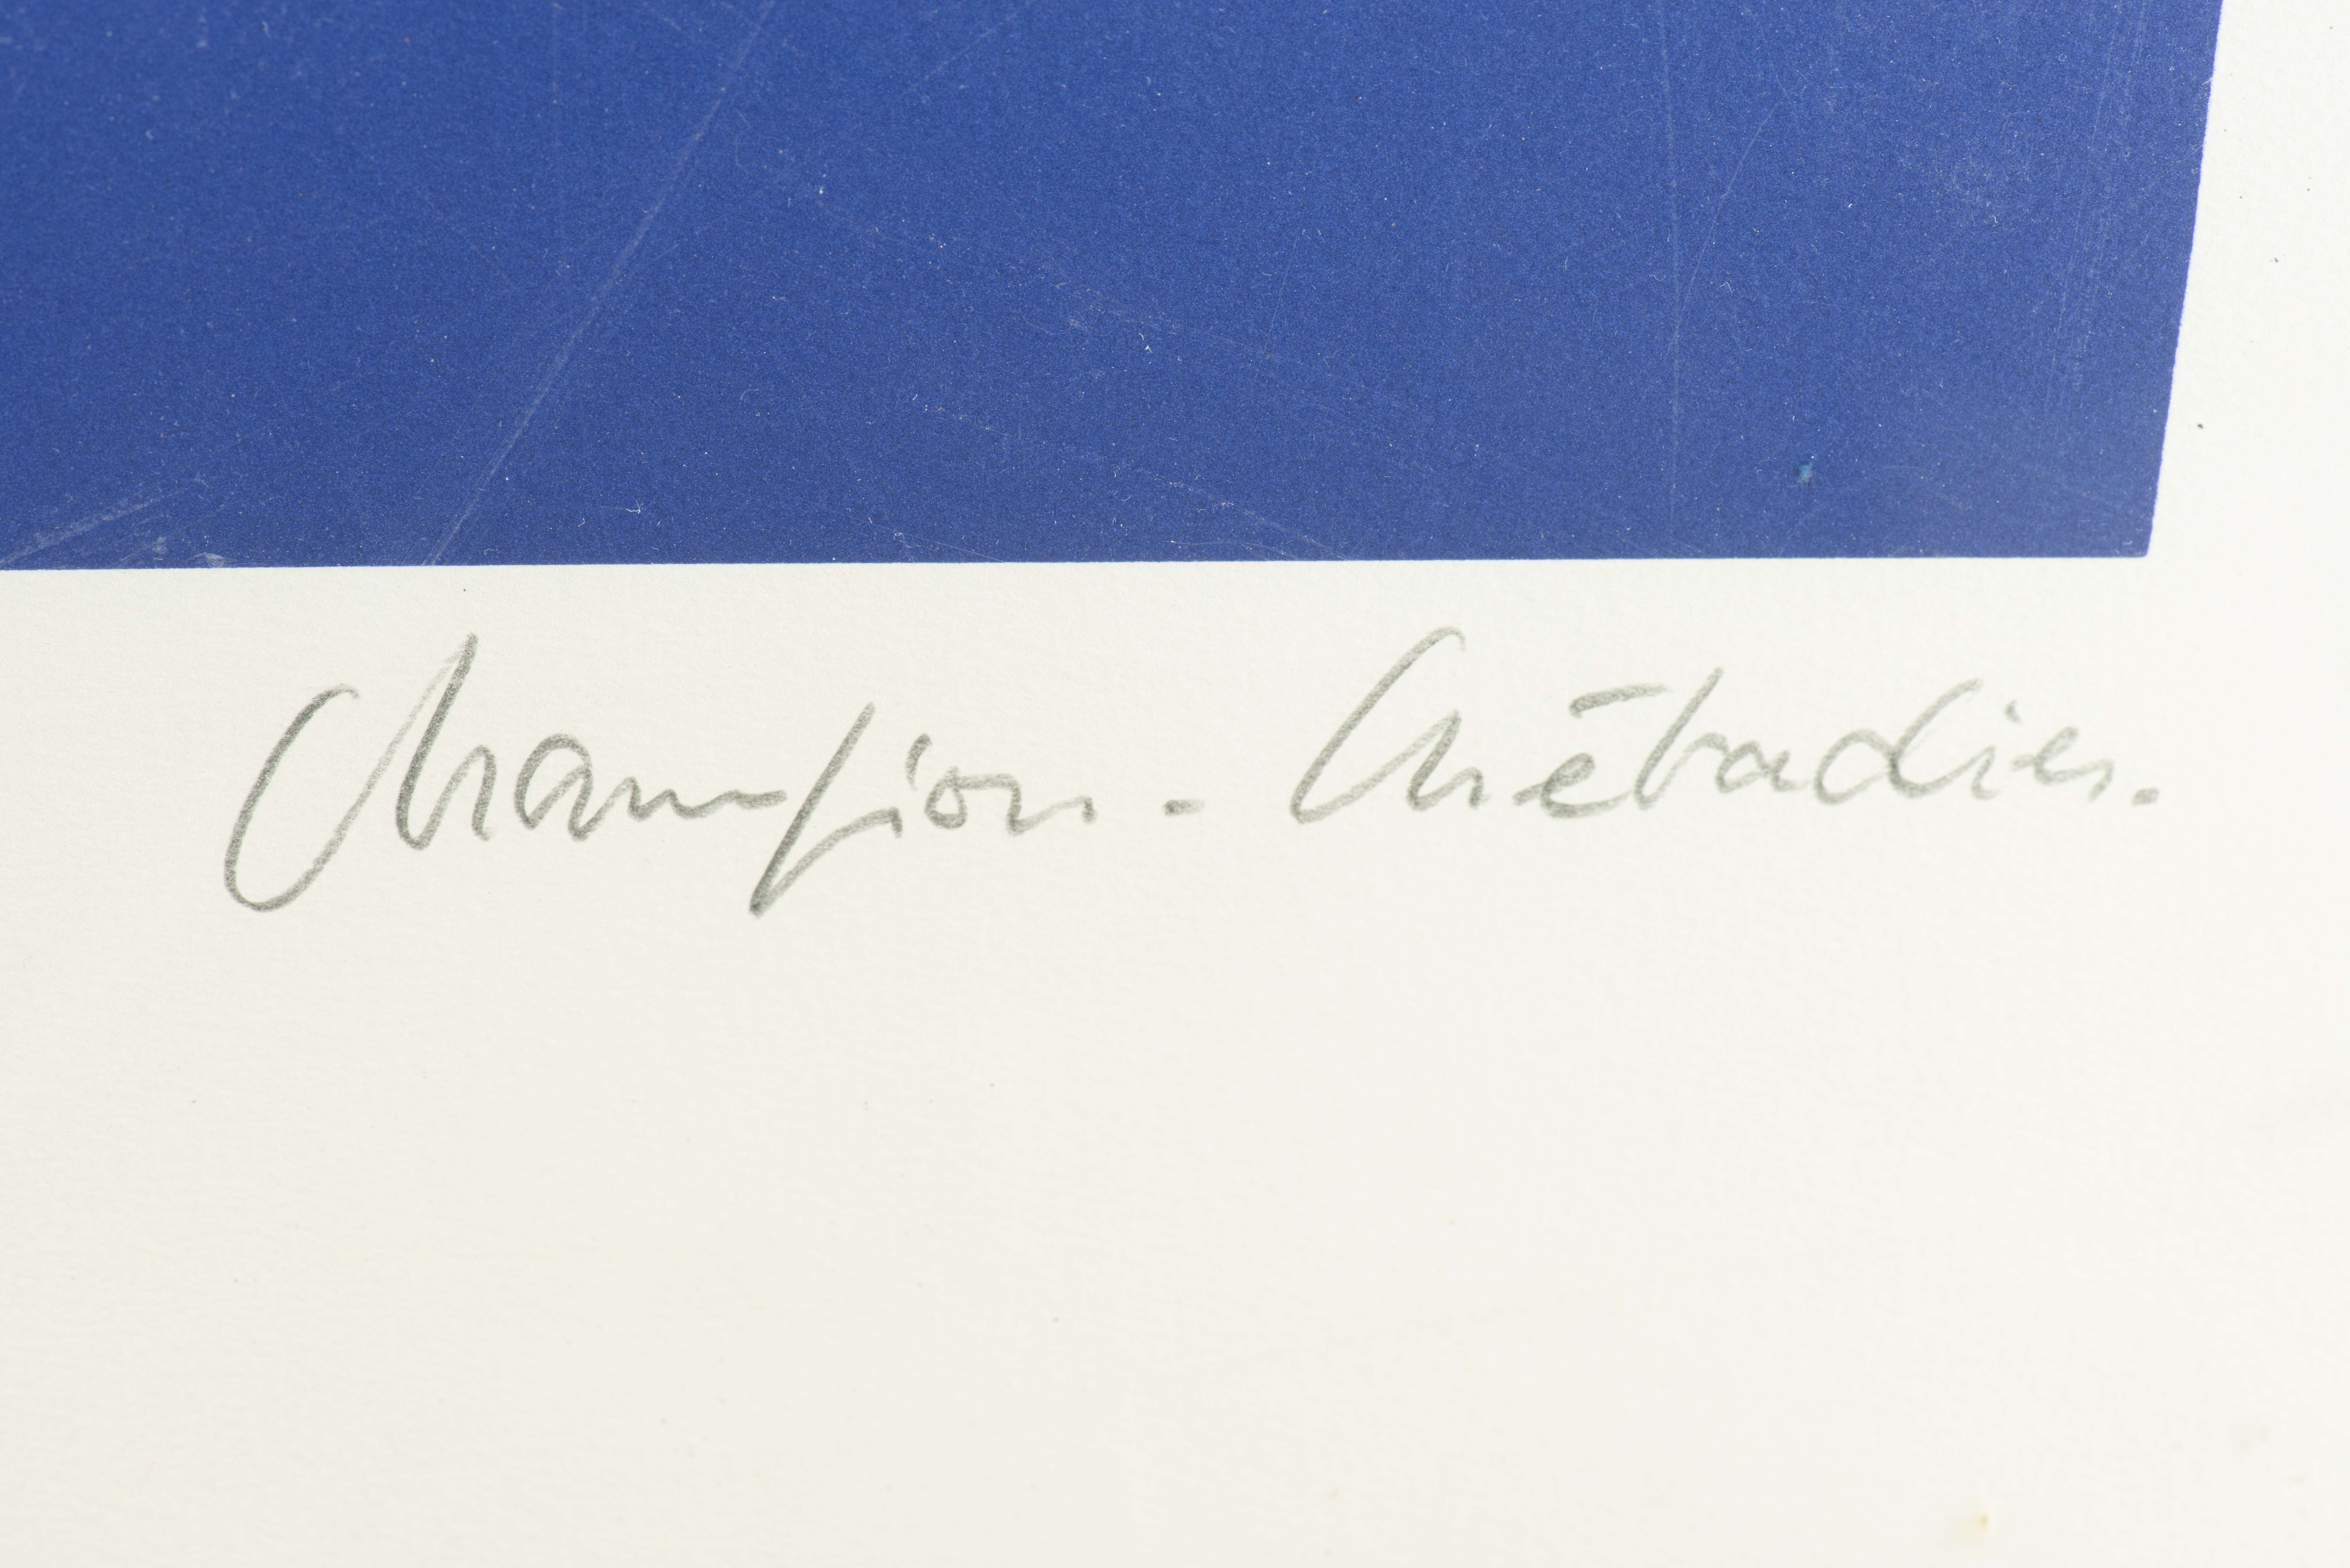 Champion - Métadier.